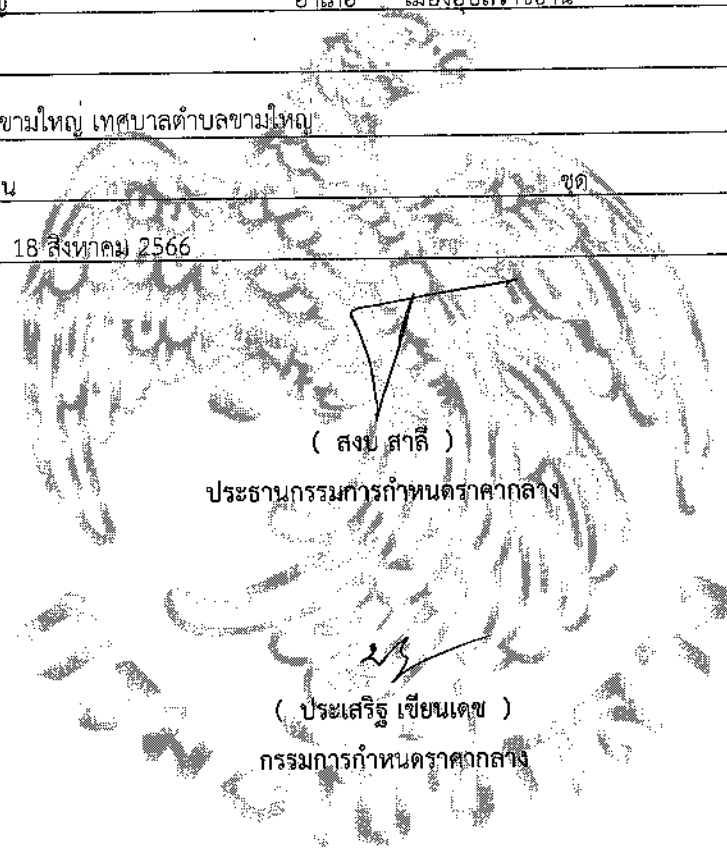 อำเภอ เมืองอุบลราชธานี
ขามใหญ่ เทศบาลตำบลขามใหญ่
น ชุด
18 สิงหาคม 2566
( สงบ สาลี )
ประธานกรรมการกำหนดราคากลาง
( ประเสริฐ เขียนเดช )
กรรมการกำหนดราคากลาง